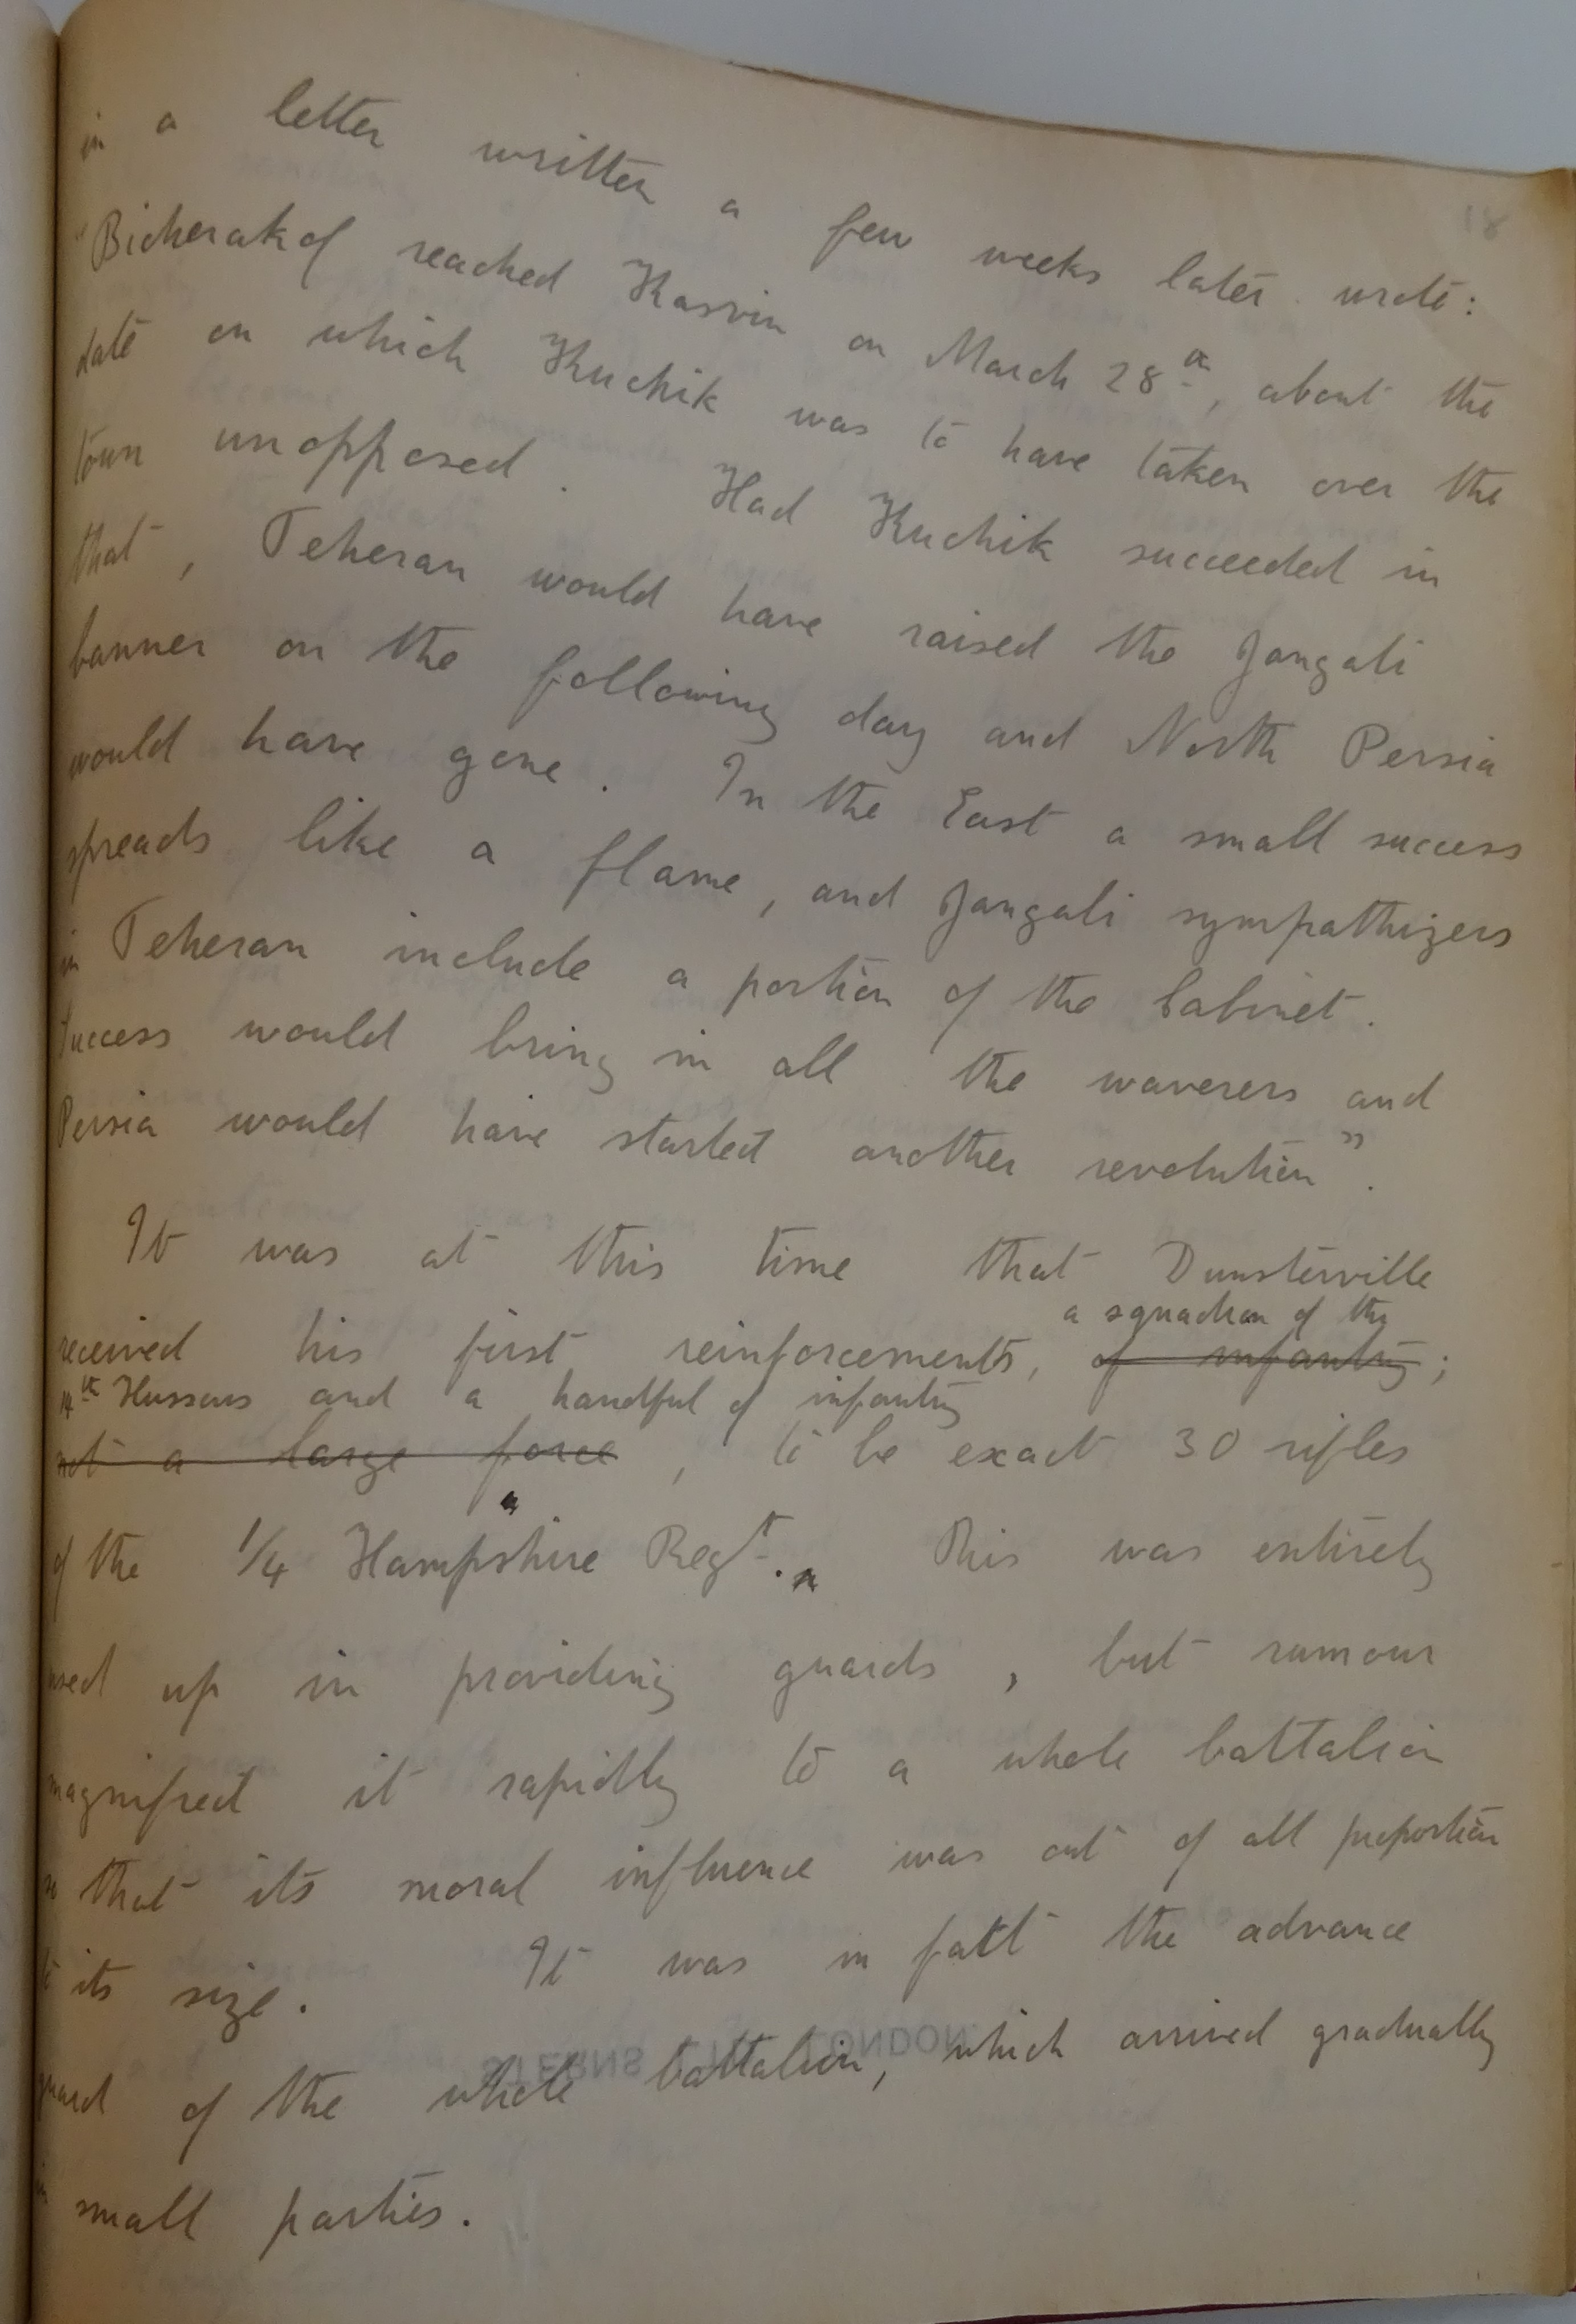 18
in a letter written a few weeks later wrote:
"Bicherakof reached Kasvin on March 28th, about the
date on which Kuchik was to have taken over the
town unopposed. Had Kuchik succeeded in
that, Teheran would have raised the Jangali
banner on the following day and North Persia
would have gone. In the East a small success
spreads like a flame, and Jangali sympathizers
in Teheran include a portion of the Cabinet.
Success would bring in all the waverers and
Persia would have started another revolution".
It was at this time that Dunsterville
a squadron of the
received his first reinforcements, of infantry;
14th Hussars and a handful of infantry
not a large force, to be exact 30 rifles
of the 1/4 Hampshire Regt. This was entirely
used up in providing guards, but rumour
magnified it rapidly to a whole battalion
so that its moral influence was out of all proportion
to its size. It was in fact the advance
guard of the whole battalion, which arrived gradually
STERNS LONDON
in small parties.